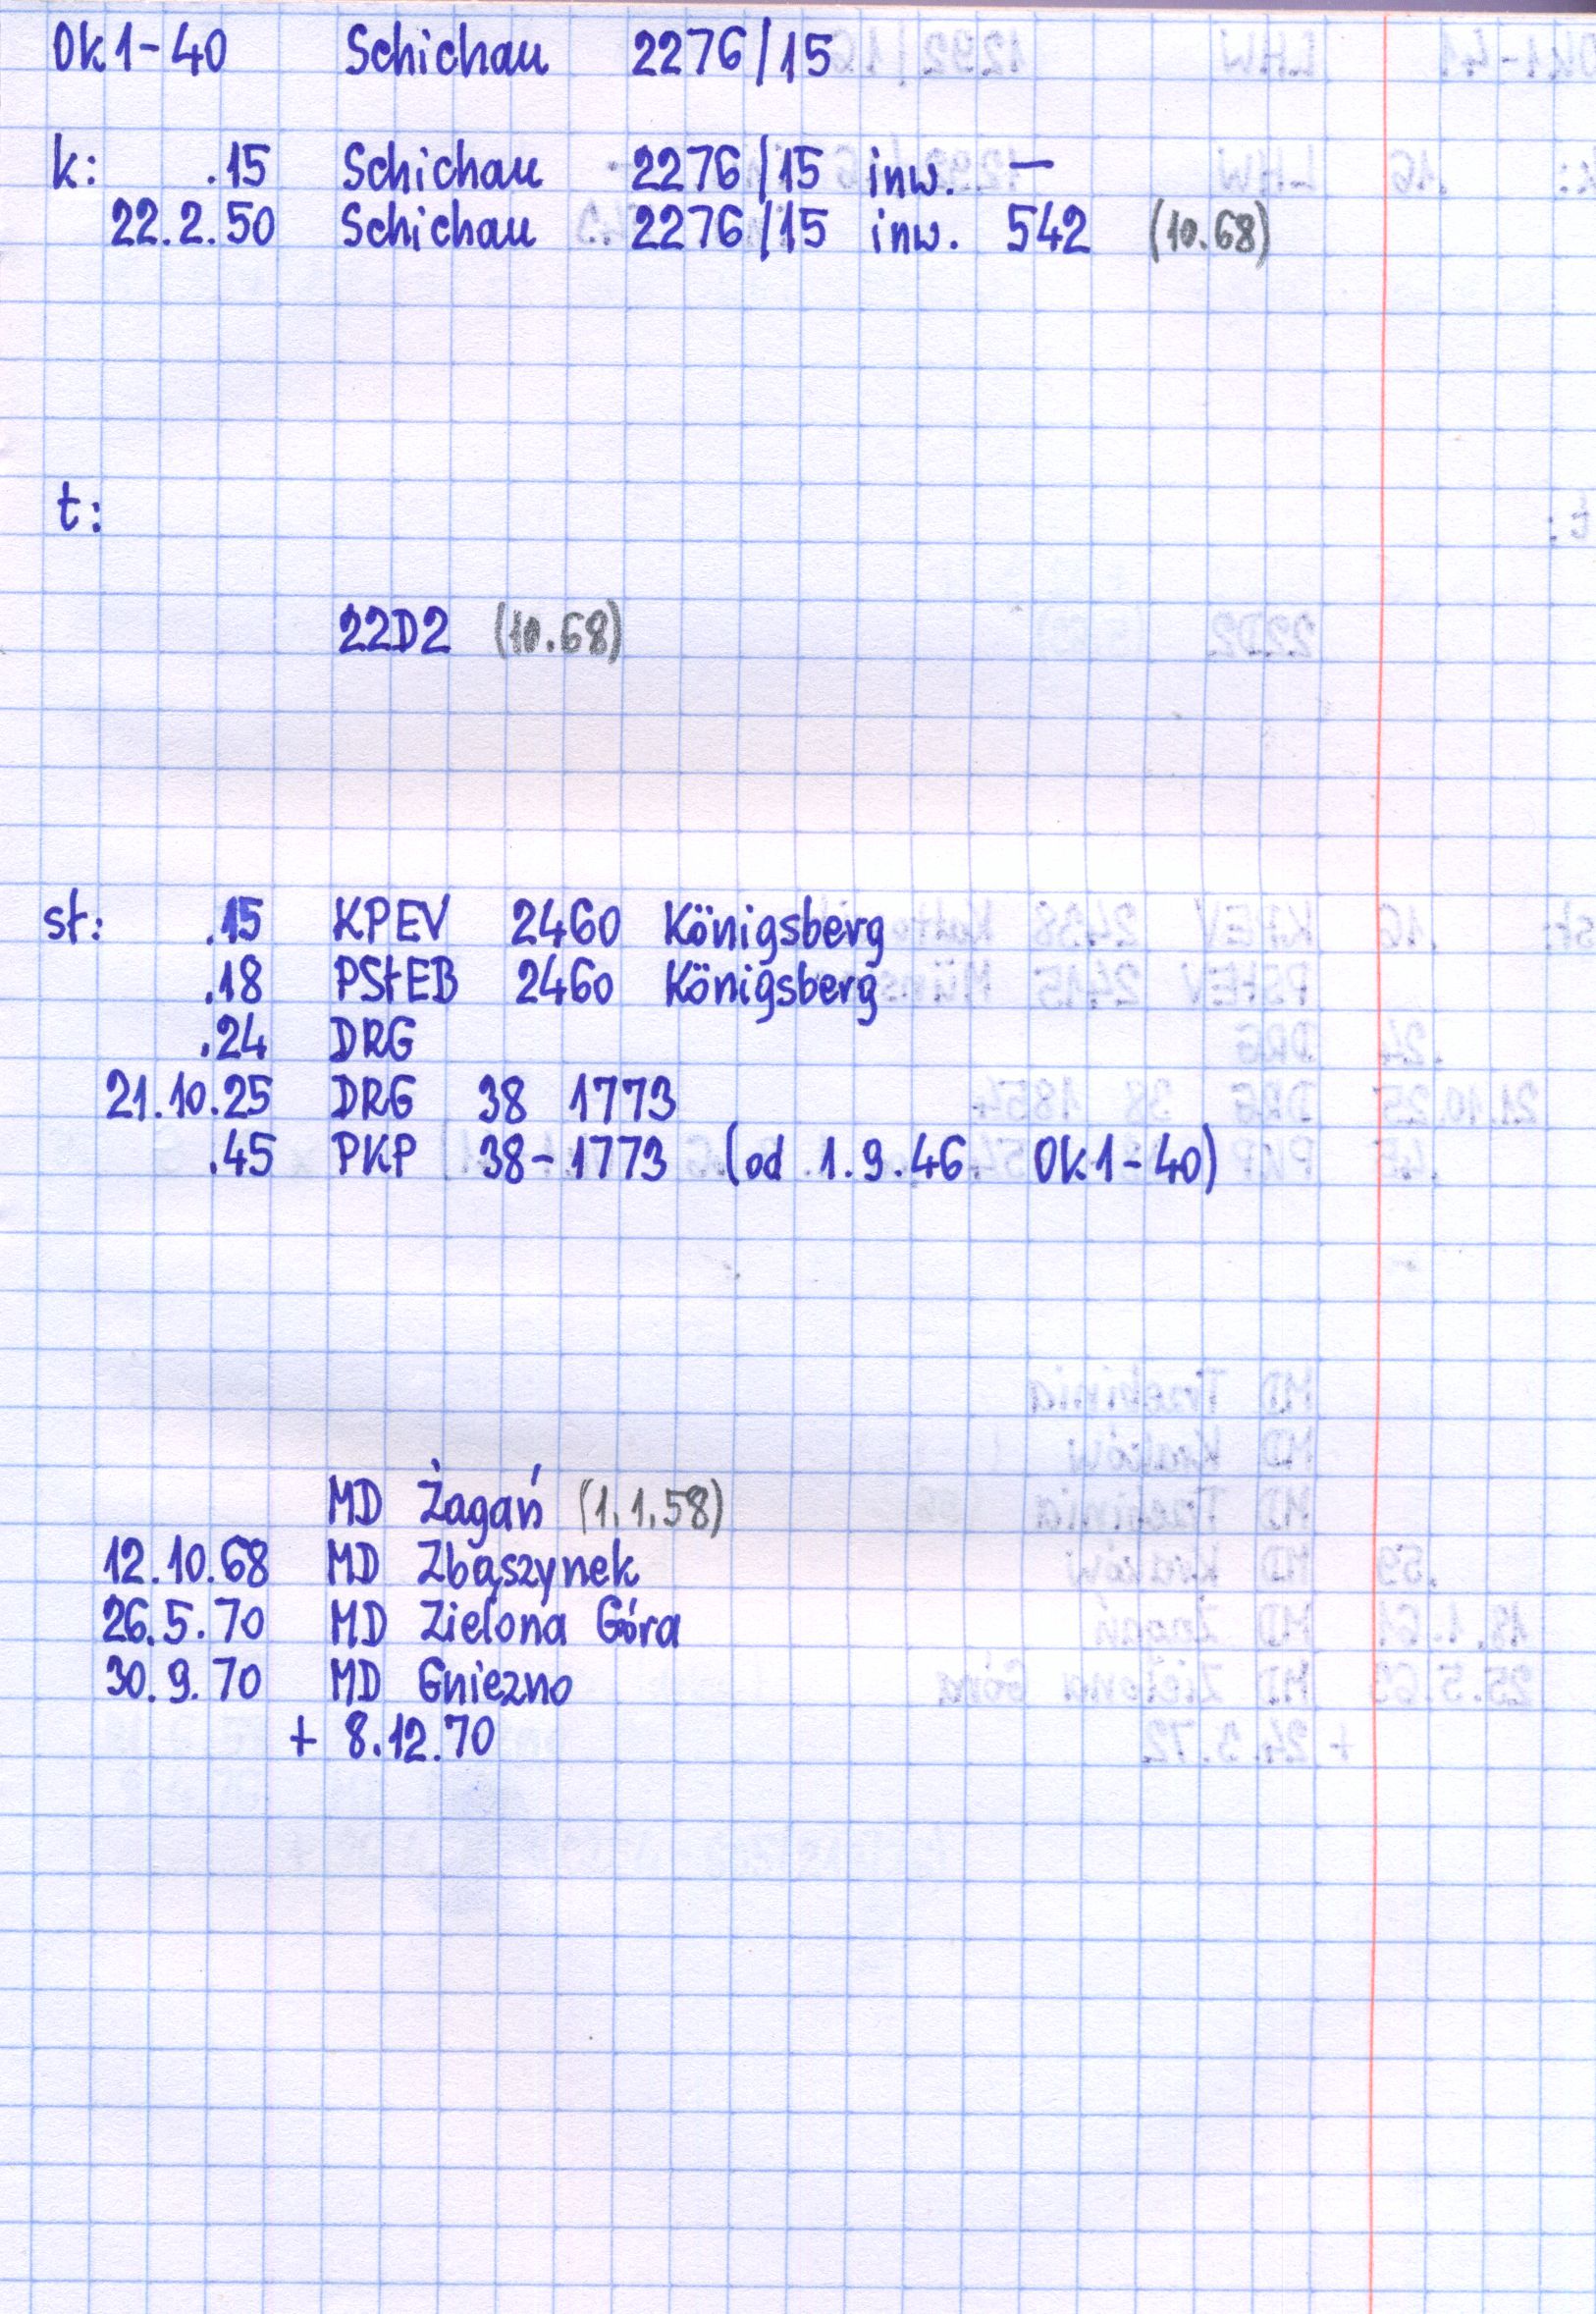 Ok1-40 Schichau 2276/15
k: .15 Schichau 2276/15 inw. —
22.2.50 Schichau 2276/15 inw. 542 (10.68)
t:
22D2 (10.68)
st: .15 KPEV 2460 Königsberg
.18 PStEB 2460 Königsberg
.24 DRG
21.10.25 DRG 38 1773
.45 PKP 38-1773 (od 1.9.46 Ok1-40)
MD Żagań (1.1.58)
12.10.68 MD Zbąszynek
26.5.70 MD Zielona Góra
30.9.70 MD Gniezno
+ 8.12.70